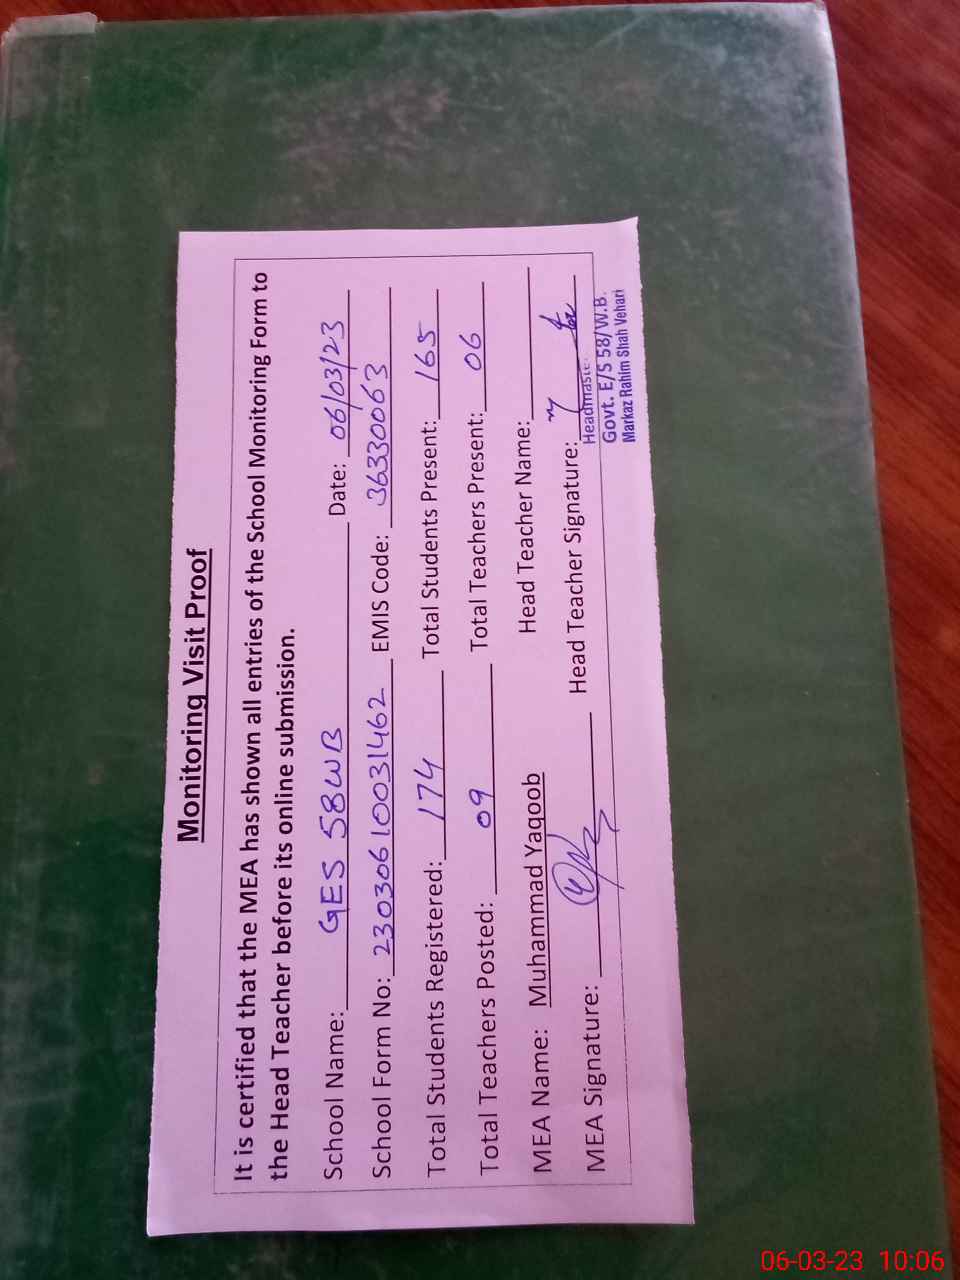 Monitoring Visit Proof
It is certified that the MEA has shown all entries of the School Monitoring Form to
the Head Teacher before its online submission.
School Name: GES 58WB Date: 06/03/23
School Form No: 23030610031462 EMIS Code: 36330063
Total Students Registered: 174 Total Students Present: 165
Total Teachers Posted: 09 Total Teachers Present: 06
MEA Name: Muhammad Yaqoob Head Teacher Name:
MEA Signature: Head Teacher Signature:
Headmaster
Govt. E/S 58/W.B.
Markaz Rahim Shah Vehari
06-03-23 10:06